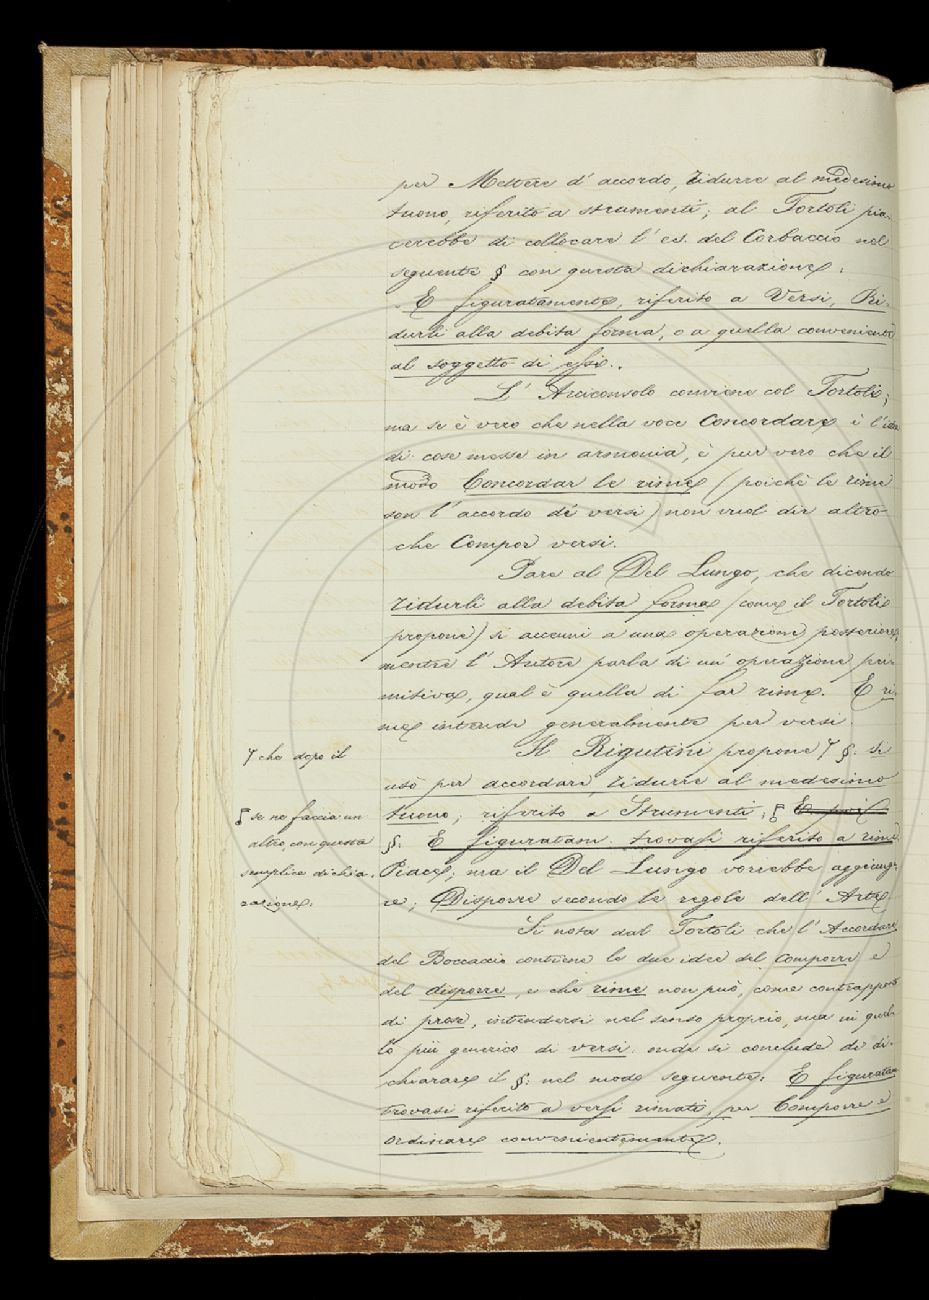 per Mettere d' accordo, ridurre al medesimo
tuono, riferito a strumenti; al Tortoli pia-
cerebbe di collocare l' es. del Corbaccio nel
seguente § con questa dichiarazione:
E figuratamente, riferito a Versi, Ri-
durli alla debita forma, o a quella conveniente
al soggetto di essi.
L' Arciconsolo conviene col Tortoli;
ma se è vero che nella voce Concordare è l' idea
di cose messe in armonia, è pur vero che il
modo Concordar le rime (poichè le rime
son l' accordo dei versi) non vuol dir altro
che Compor versi.
Pare al Del Lungo, che dicendo
ridurli alla debita forma (come il Tortoli
propone) si accenni a una operazione posteriore,
mentre l' Autore parla di un' operazione pri-
mitiva, qual è quella di far rime. E ri-
me intende generalmente per versi.
Il Rigutini propone 7 §. si
7 che dopo il
usò per accordare, ridurre al medesimo
tuono; riferito a Strumenti; E poi il
se ne faccia un
altro con questa
semplice dichia-
razione.
§. E figuratam. trovasi riferito a rime.
Piace; ma il Del Lungo vorrebbe aggiunge-
re; Disporre secondo le regole dell' Arte
Si nota dal Tortoli che l' Accordare
del Boccaccio contiene le due idee del comporre e
del disporre, e che rime non può, come contrapposto
di prose, intendersi nel senso proprio, ma in quel-
lo più generico di versi: onde si conclude di di-
chiarare il §: nel modo seguente: E figuratam
trovasi riferito a versi rimati, per Comporre e
ordinare convenientemente.